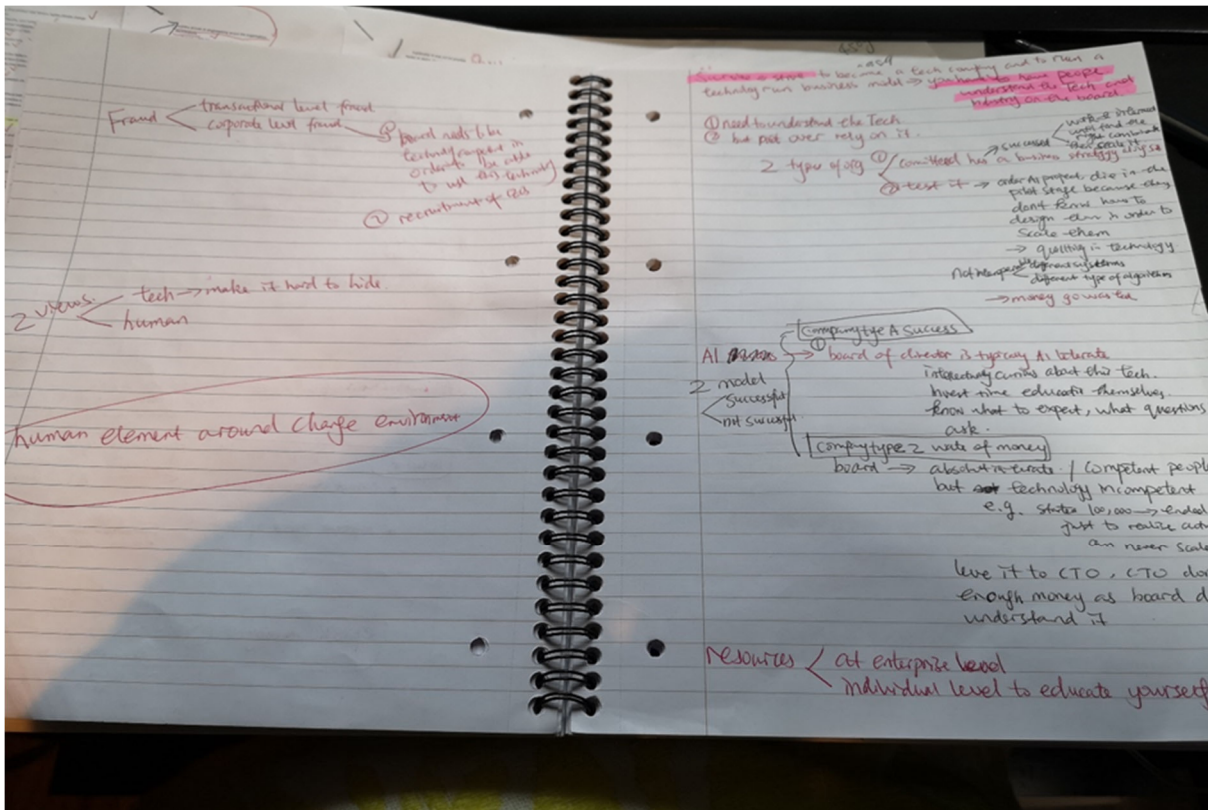 Fraud
transactional level fraud
corporate level fraud
① board needs to be
technology competent in
order to be able
to use this technology
② recruitment of
2 views.
tech → make it hard to hide
human
human element around change environment
to become a tech company and to run a
technology run business model → you have to have people
understand the Tech and
industry on the board.
① need to understand the Tech
② but not over rely on it.
2 types of org
① committed has a business strategy
→ succeed
② test it → AI project, die in the
pilot stage because they
don't know how to
design them in order to
scale them
→ in technology
different type of algorithm
→ money go wasted
company type A Success
AI → ① board of director is typically AI literate
about this tech.
invest time educate themselves.
know what to expect, what questions
ask.
2 model
successful
not successful
company type 2 waste of money
board → / competent people
but technology incompetent
e.g. 100,000 → ended
just to realize
can never scale
leave it to CTO, CTO
enough money as board
understand it
resources
at enterprise level
individual level to educate yourself